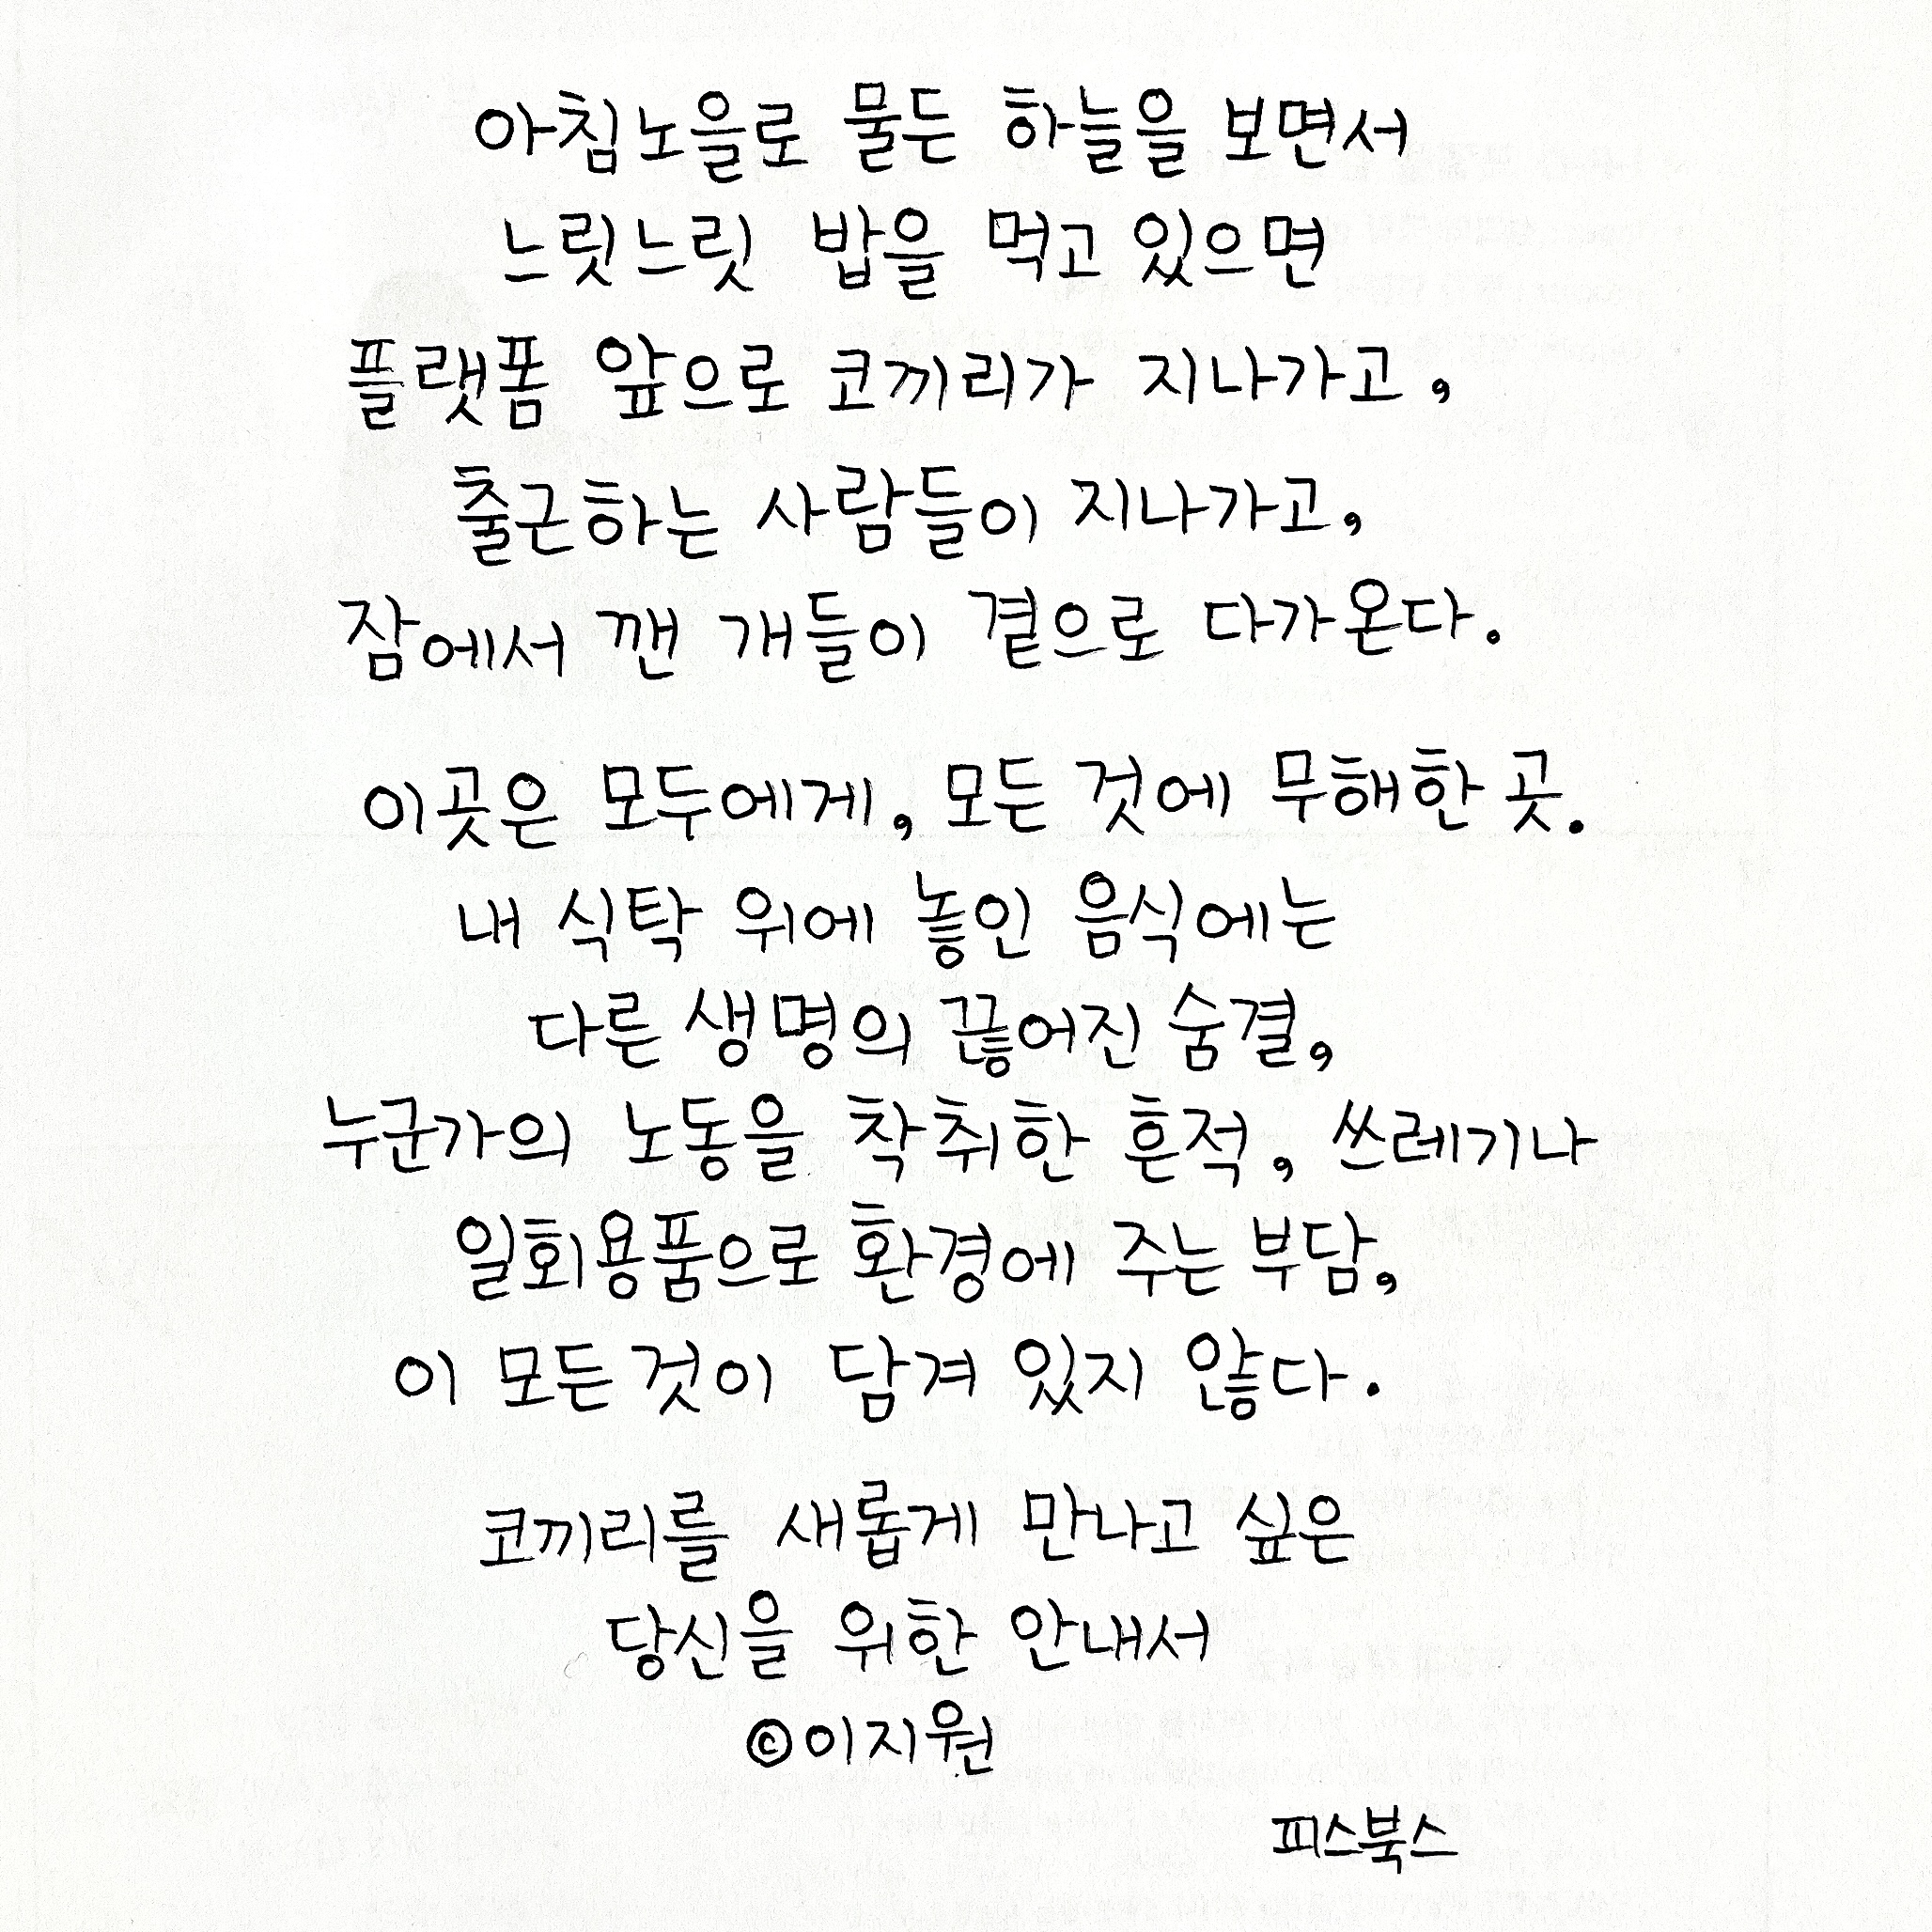 아침노을로 물든 하늘을 보면서
느릿느릿 밥을 먹고 있으면
플랫폼 앞으로 코끼리가 지나가고,
출근하는 사람들이 지나가고,
잠에서 깬 개들이 곁으로 다가온다.
이곳은 모두에게, 모든 것에 무해한 곳.
내 식탁 위에 놓인 음식에는
다른 생명의 끊어진 숨결,
누군가의 노동을 착취한 흔적, 쓰레기나
일회용품으로 환경에 주는 부담,
이 모든 것이 담겨 있지 않다.
코끼리를 새롭게 만나고 싶은
당신을 위한 안내서
©이지원
피스북스